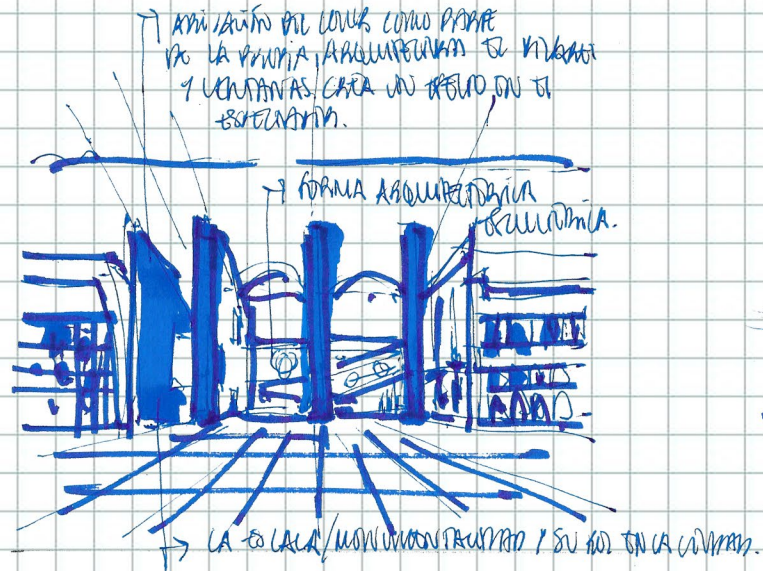 APLICACIÓN DEL COLOR COMO PARTE
DE LA PROPIA, ARQUITECTURA EL
Y VENTANAS CREA UN EFECTO EN EL
ESPECTADOR.
FORMA ARQUITECTÓNICA
ESCULTÓRICA.
LA ESCALA/MONUMENTALIDAD Y SU ROL EN LA CIUDAD.